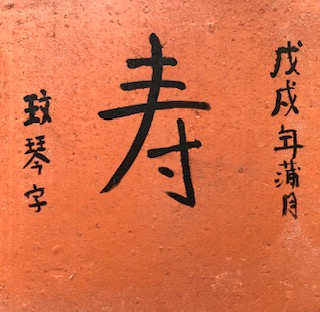 戊戌年蒲月
寿
玟琴字